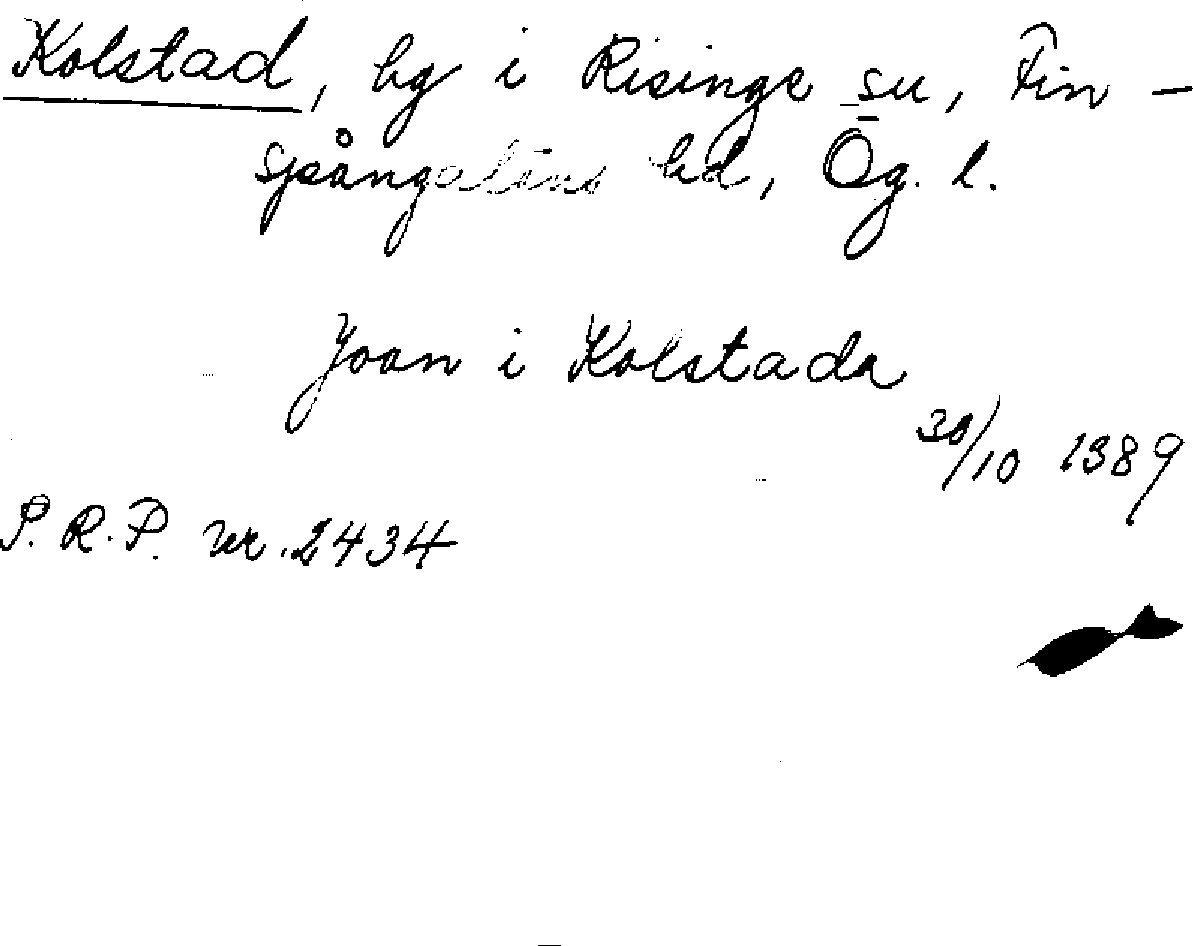 Kolstad, by i Risinge sn, Fin-
spångaläns hd, Ög. l.
Joan i Kolstada
30/10 1389
S. R. P. nr. 2434